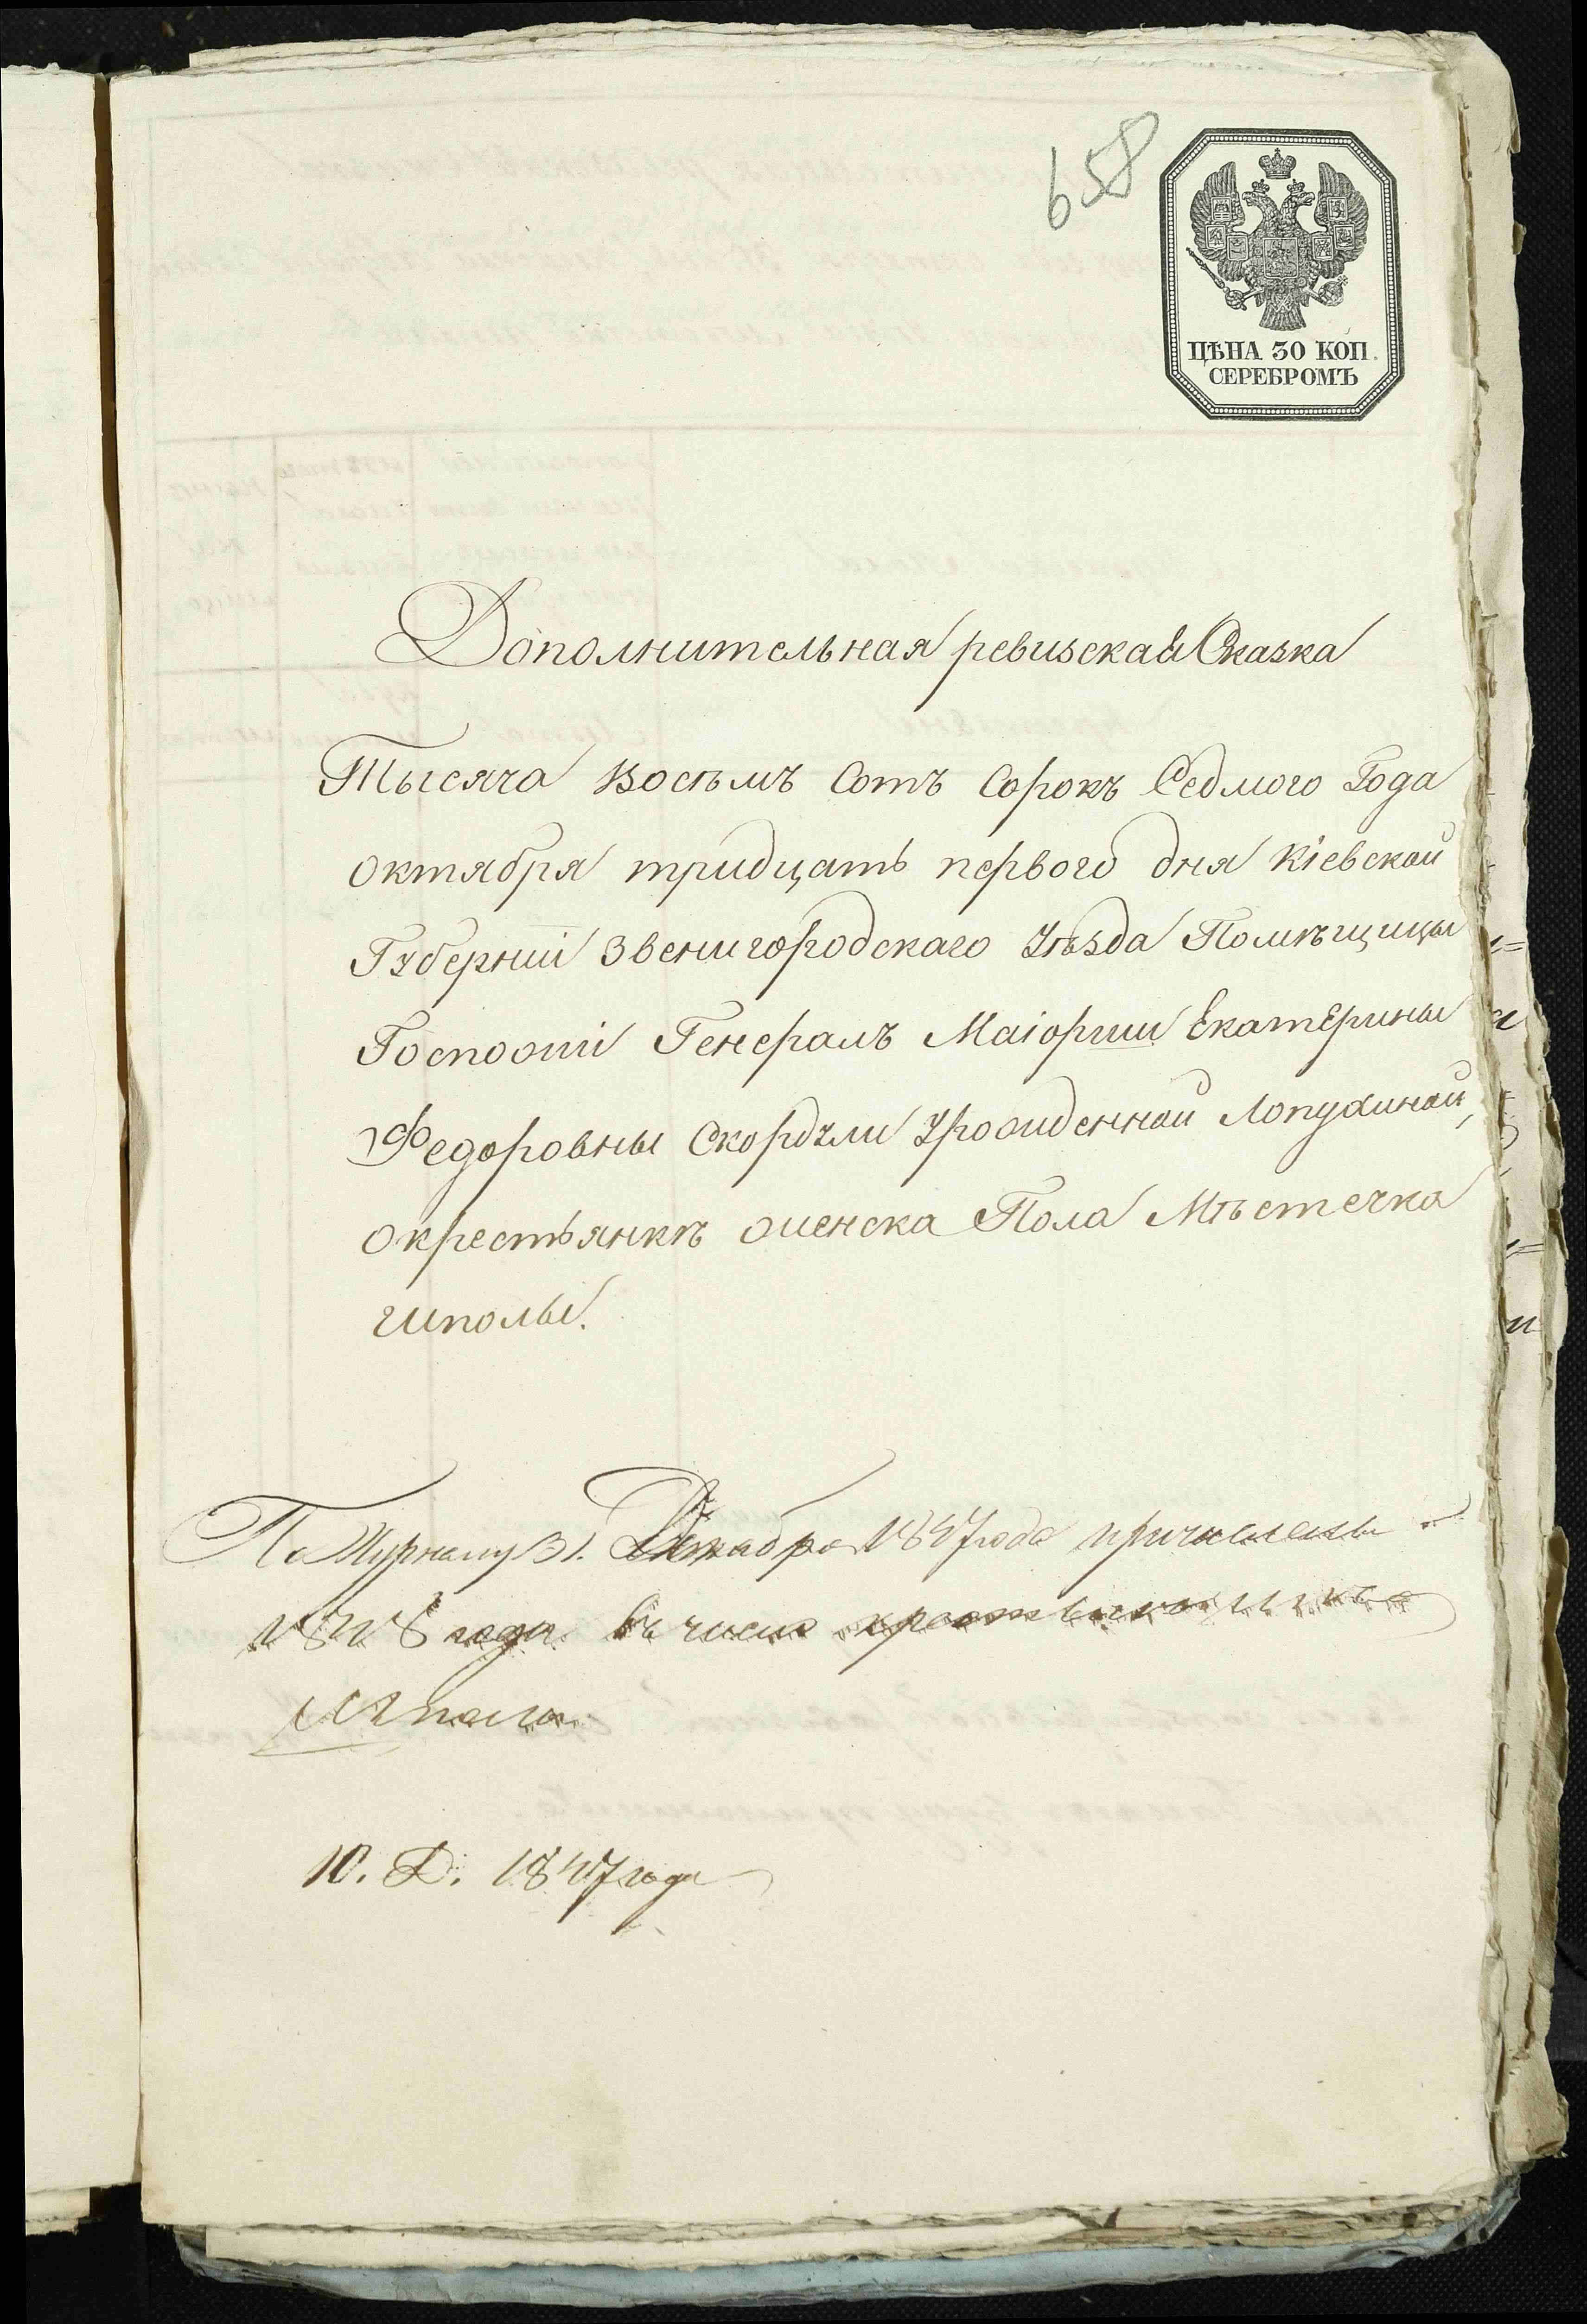 658
ЦѢНА 30 КОП.
СЕРЕБРОМЪ
Дополнительная ревизская Сказка
Тысяча Восѣмъ Сотъ Сорокъ Седмого Года
октября тридцать первого дня Кіевской
Губерніи Звенигородскаго Уѣзда Помѣщицы
Госпожи Генералъ Маіорши Екатерины
Федоровны Скордули Урожденной Лопухиной,
окрестьянкѣ женска Пола Мѣстечка
Шполы.
По Журналу 31. Декабря 1847 года причислены с
1848 года въ число крестьянъ
10. Д. 1847 года